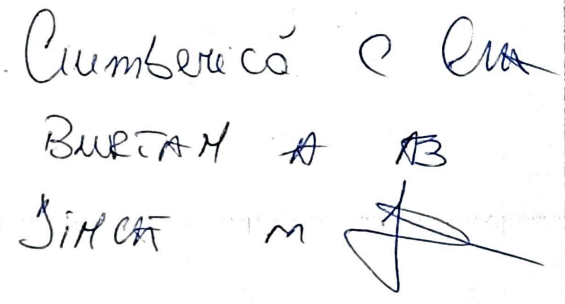 Ciumberică C
BURTAN A AB
SIMCA M